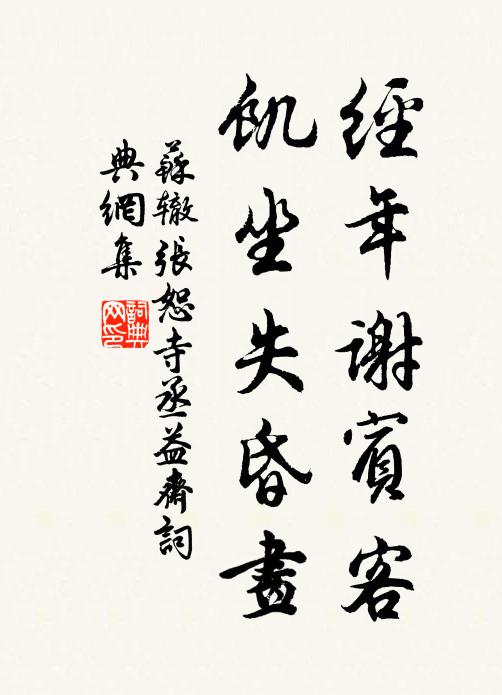 經年謝賓客
飢坐失昏晝
蘇辙張恕寺丞益齋詞
典網集
詞典網印